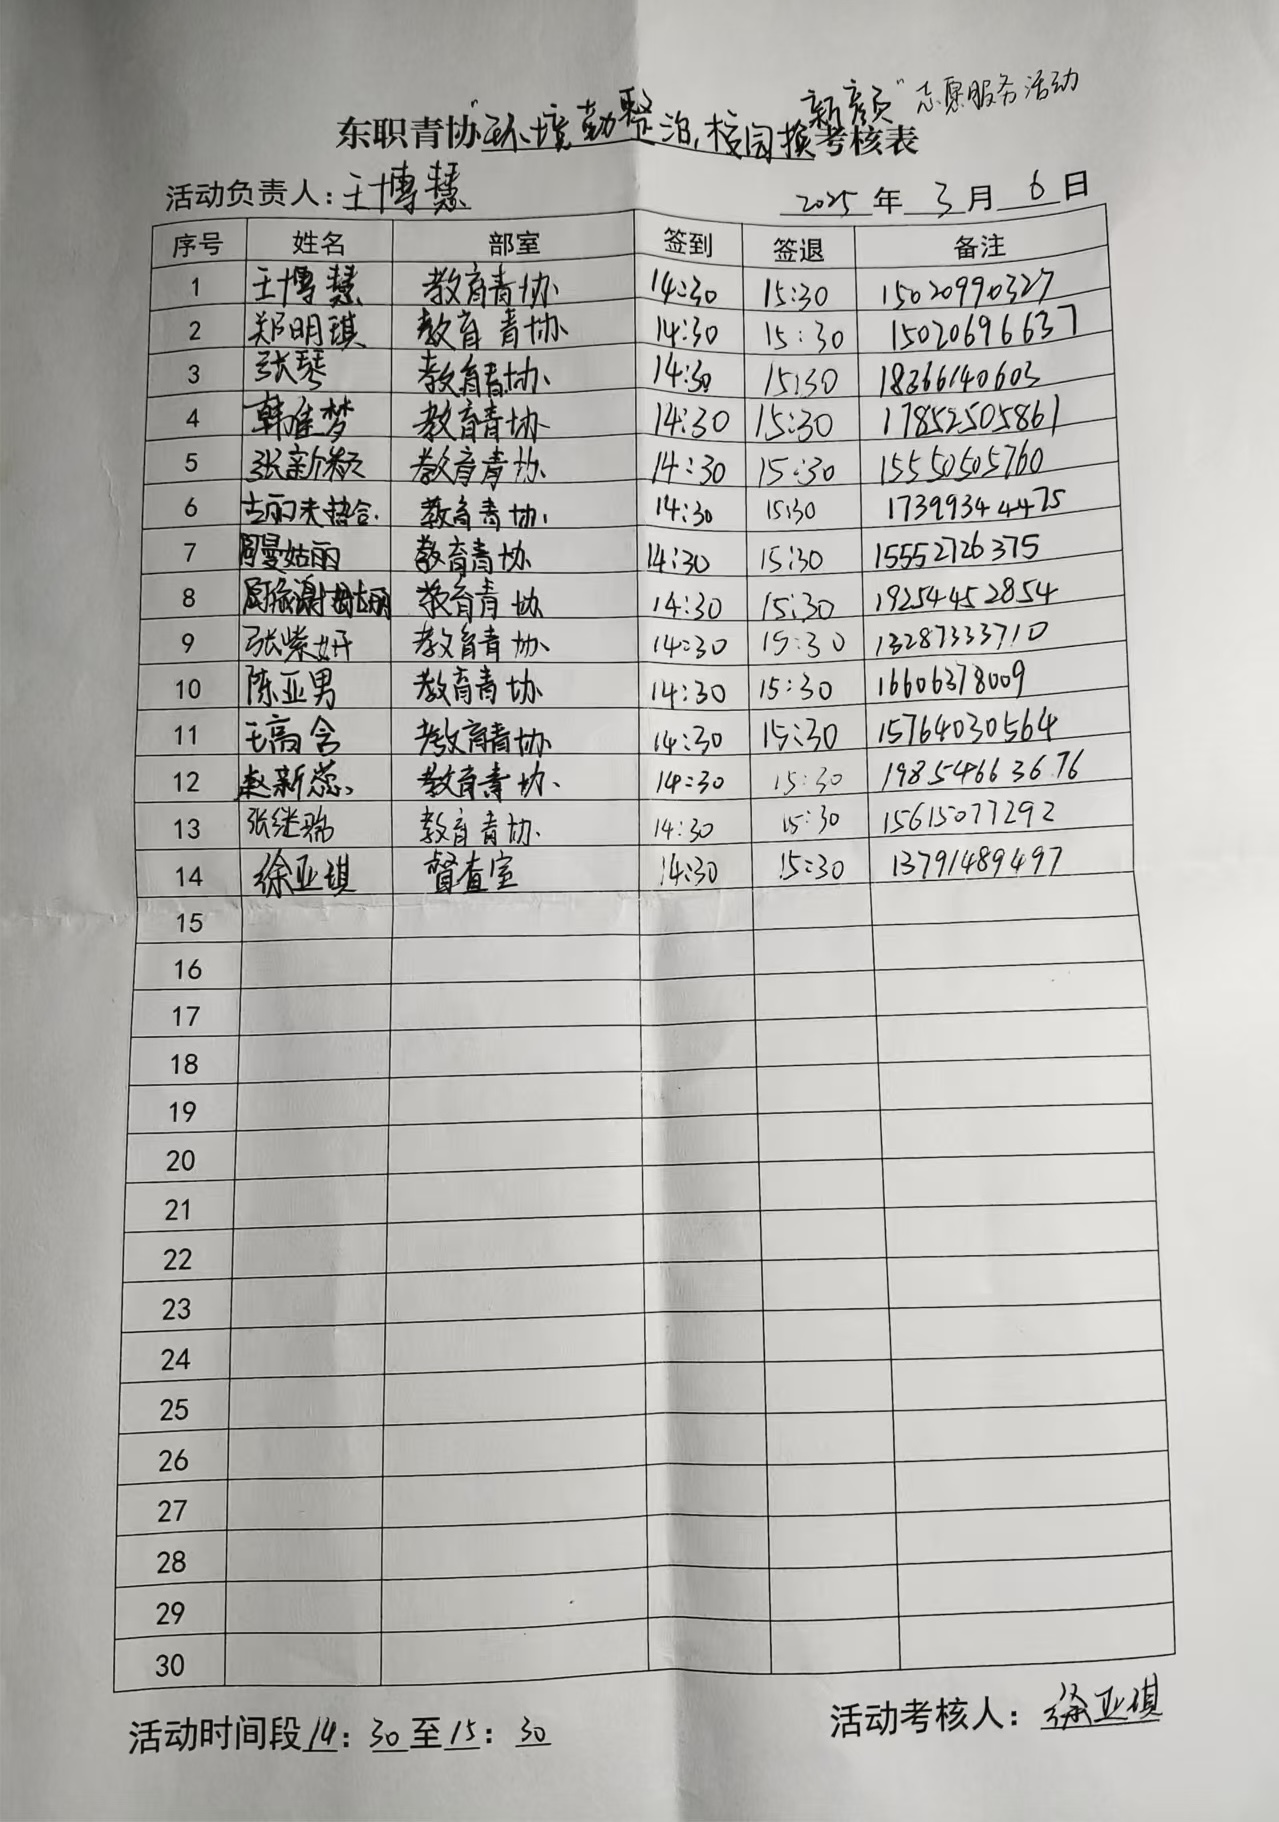 东职青协“环境勤整治,校园换新颜”志愿服务活动考核表
活动负责人:王博慧 2025年3月6日
序号 姓名 部室 签到 签退 备注
1 王博慧 教育青协 14:30 15:30 15020990327
2 郑明琪 教育青协 14:30 15:30 15020696637
3 张琴 教育青协 14:30 15:30 18366140603
4 韩雅梦 教育青协 14:30 15:30 17852505861
5 张新 教育青协 14:30 15:30 15550505760
6 教育青协 14:30 15:30 17399344475
7 曼姑丽 教育青协 14:30 15:30 15552726375
8 教育青协 14:30 15:30 19254452854
9 张紫妍 教育青协 14:30 15:30 13287333710
10 陈亚男 教育青协 14:30 15:30 16606378009
11 王高含 教育青协 14:30 15:30 15764030564
12 赵新蕊 教育青协 14:30 15:30 19854663676
13 张继瑞 教育青协 14:30 15:30 15615077292
14 徐亚琪 督查室 14:30 15:30 13791489497
15
16
17
18
19
20
21
22
23
24
25
26
27
28
29
30
活动时间段14:30至15:30 活动考核人:徐亚琪